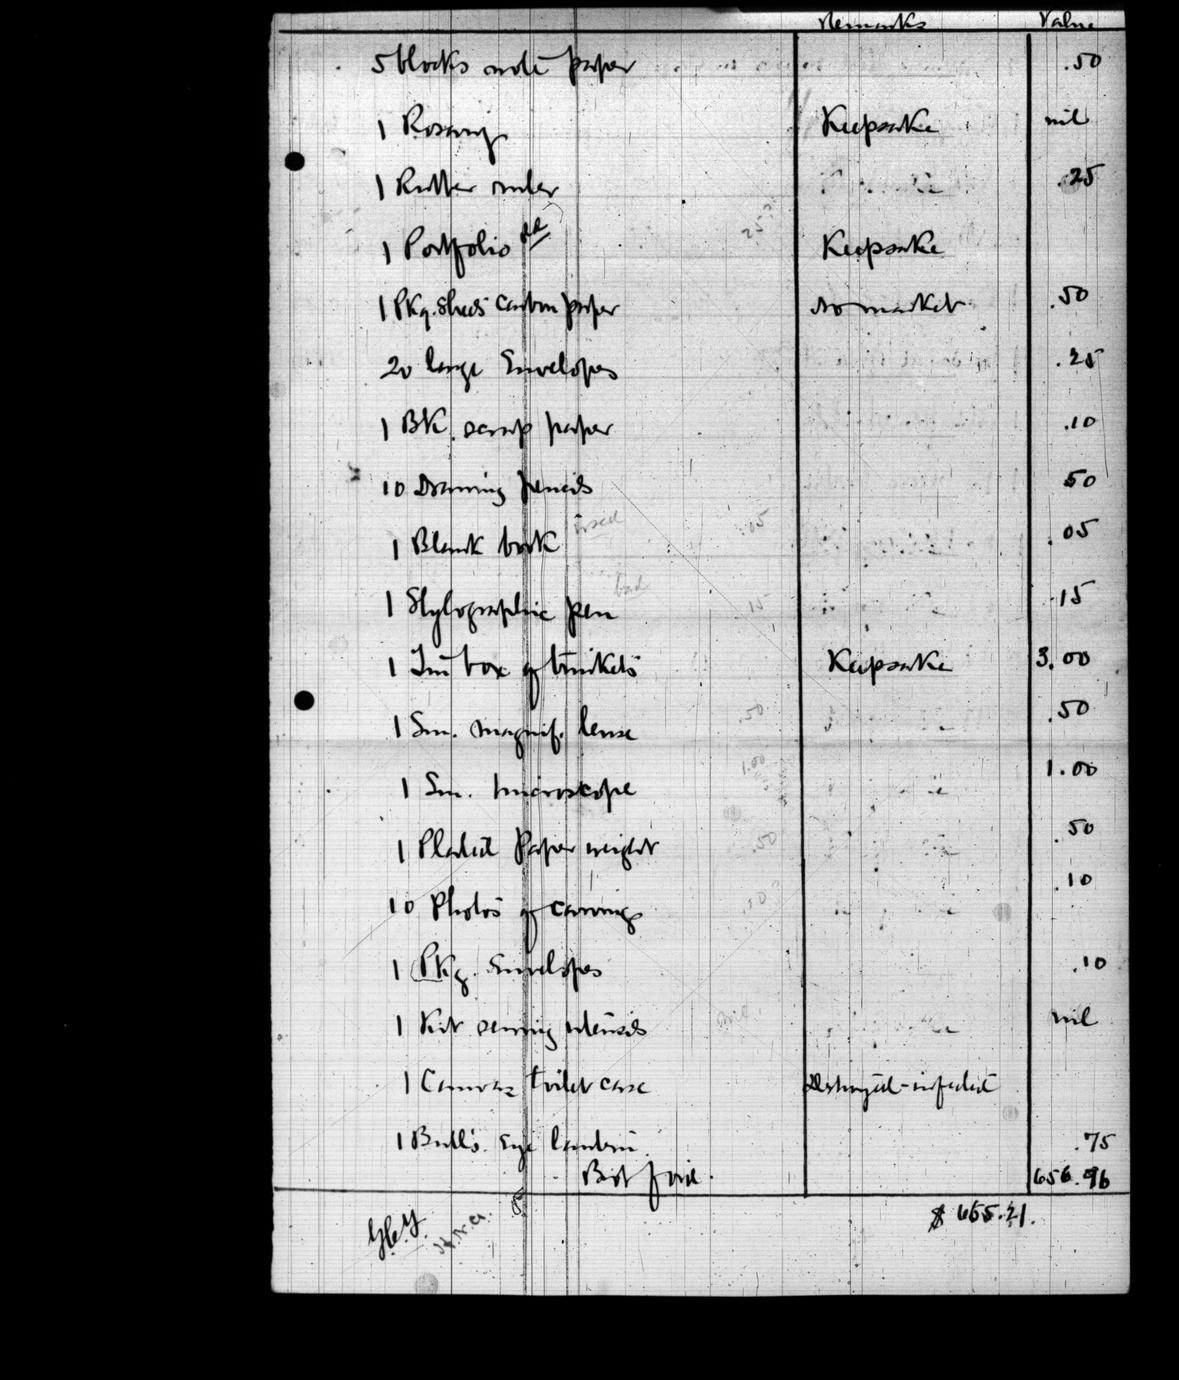 Remarks Value
5 blocks note paper .50
1 Rosary Keepsake nil
1 Rubber ruler .25
1 Portfolio Keepsake
1 Pkg. sheets carbon paper no market .50
20 large Envelopes .25
1 BK. scrap paper .10
10 Drawing pencils 50
1 Blank book used .05 .05
1 Stylographic pen bad 15 .15
1 Tin box of trinkets Keepsake 3.00
1 Sm. magnif. lense .50 .50
1 Sm. microscope 1.00 1.00
1 Plated Paper weight .50 .50
10 Photos of carvings .10 .10
1 Pkg. Envelopes .10
1 Kit sewing utensils nil nil
1 Canvas toilet case Destroyed - infected
1 Bull's Eye lantern .75
Brot ford. 656.96
$ 665.21.